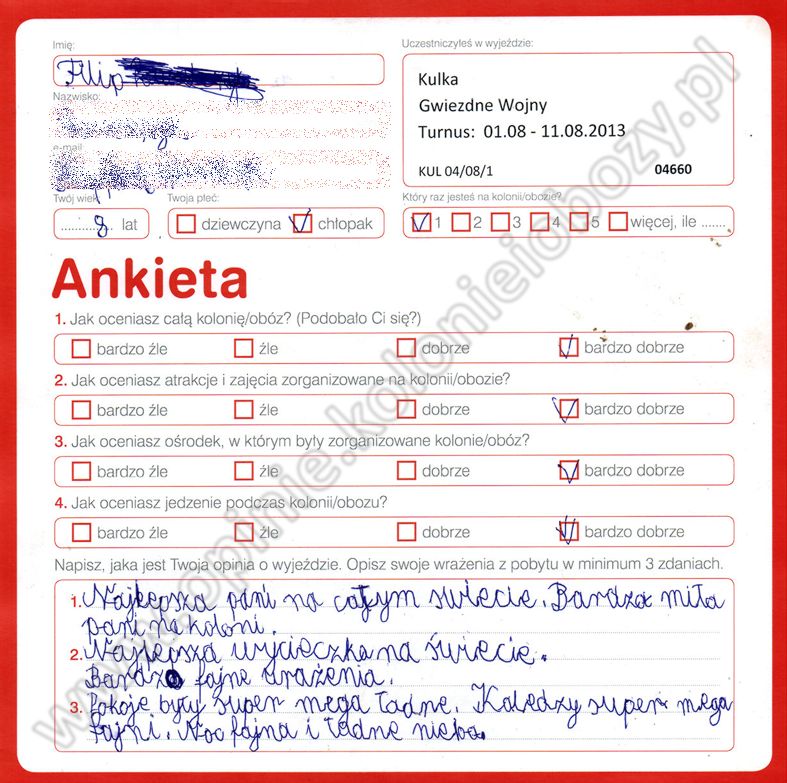 Imię:
Filip
Nazwisko:
e-mail
Twój wiek
8 lat
Twoja płeć:
dziewczyna chłopak
Uczestniczyłeś w wyjeździe:
Kulka
Gwiezdne Wojny
Turnus: 01.08 - 11.08.2013
KUL 04/08/1 04660
Który raz jesteś na kolonii/obozie?
1 2 3 4 5 więcej, ile .......
Ankieta
1. Jak oceniasz całą kolonię/obóz? (Podobało Ci się?)
bardzo źle źle dobrze bardzo dobrze
2. Jak oceniasz atrakcje i zajęcia zorganizowane na kolonii/obozie?
bardzo źle źle dobrze bardzo dobrze
3. Jak oceniasz ośrodek, w którym były zorganizowane kolonie/obóz?
bardzo źle źle dobrze bardzo dobrze
4. Jak oceniasz jedzenie podczas kolonii/obozu?
bardzo źle źle dobrze bardzo dobrze
Napisz, jaka jest Twoja opinia o wyjeździe. Opisz swoje wrażenia z pobytu w minimum 3 zdaniach.
1. Najlepsza pani na całym świecie. Bardzo miła
pani na koloni.
2. Najlepsza wycieczka na świecie.
Bardzo fajne wrażenia.
3. Pokoje były super mega ładne. Koledzy super mega
fajni. Noc fajna i ładne nieba.
www.opinie.kolonieiobozy.pl